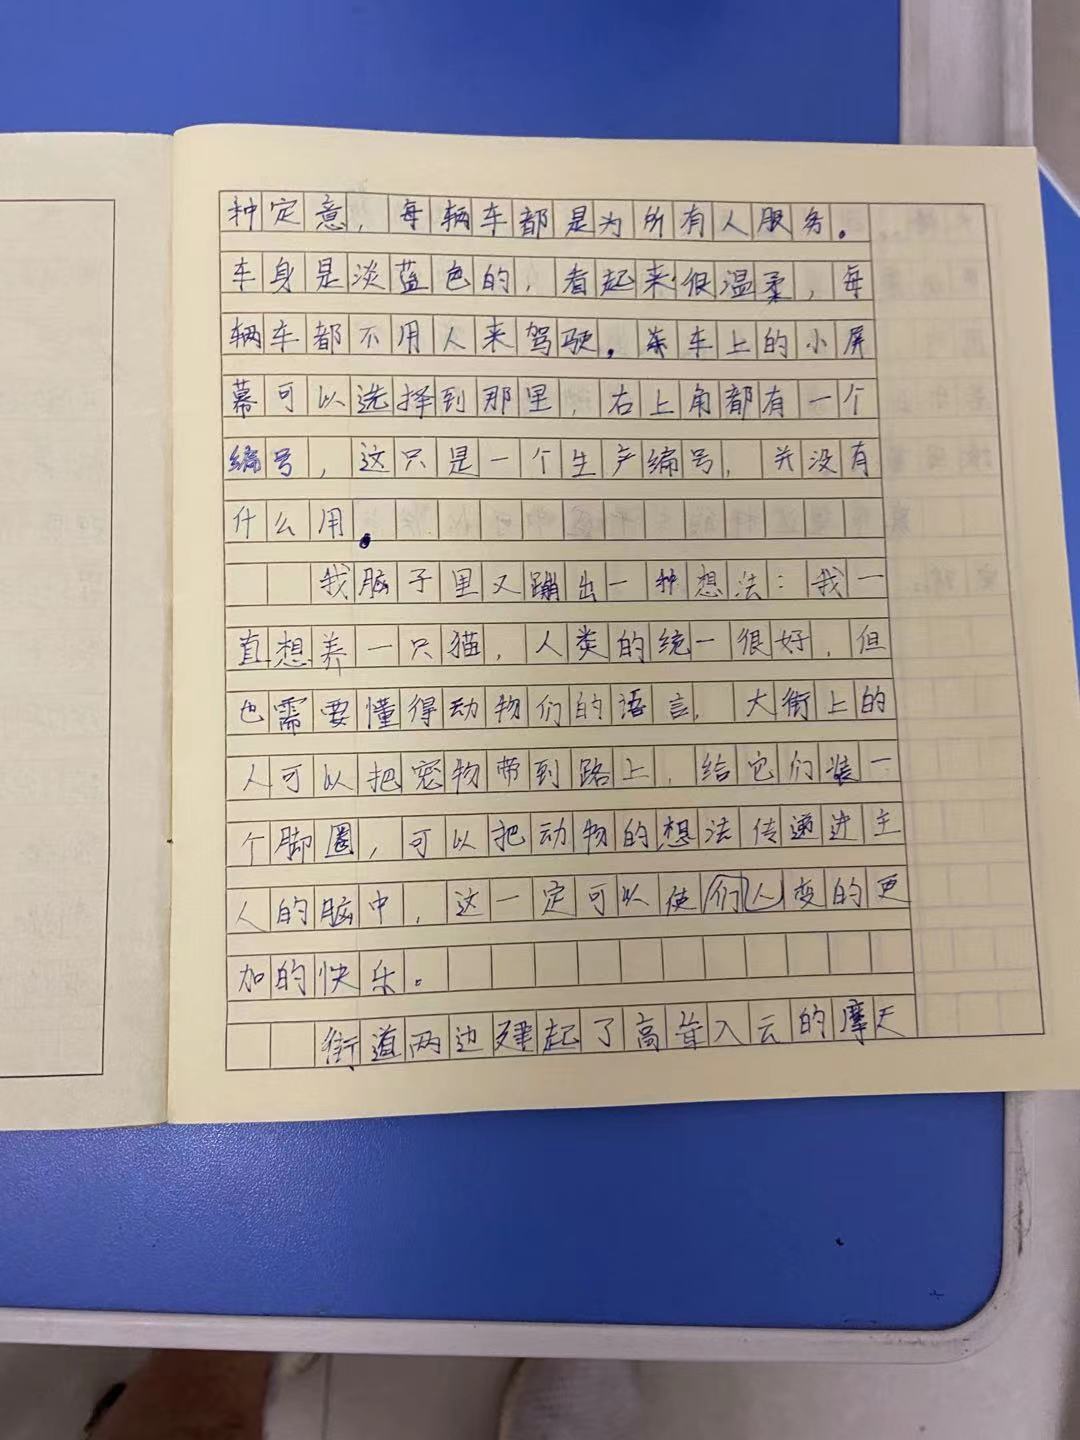 种定意，每辆车都是为所有人服务。
车身是淡蓝色的，看起来很温柔，每
辆车都不用人来驾驶。车上的小屏
幕可以选择到那里，右上角都有一个
编号，这只是一个生产编号，关没有
什么用。
我脑子里又蹦出一种想法：我一
直想养一只猫，人类的统一很好，但
也需要懂得动物们的语言，大街上的
人可以把宠物带到路上，给它们装一
个脚圈，可以把动物的想法传递进主
人的脑中，这一定可以使们人变的更
加的快乐。
街道两边建起了高耸入云的摩天